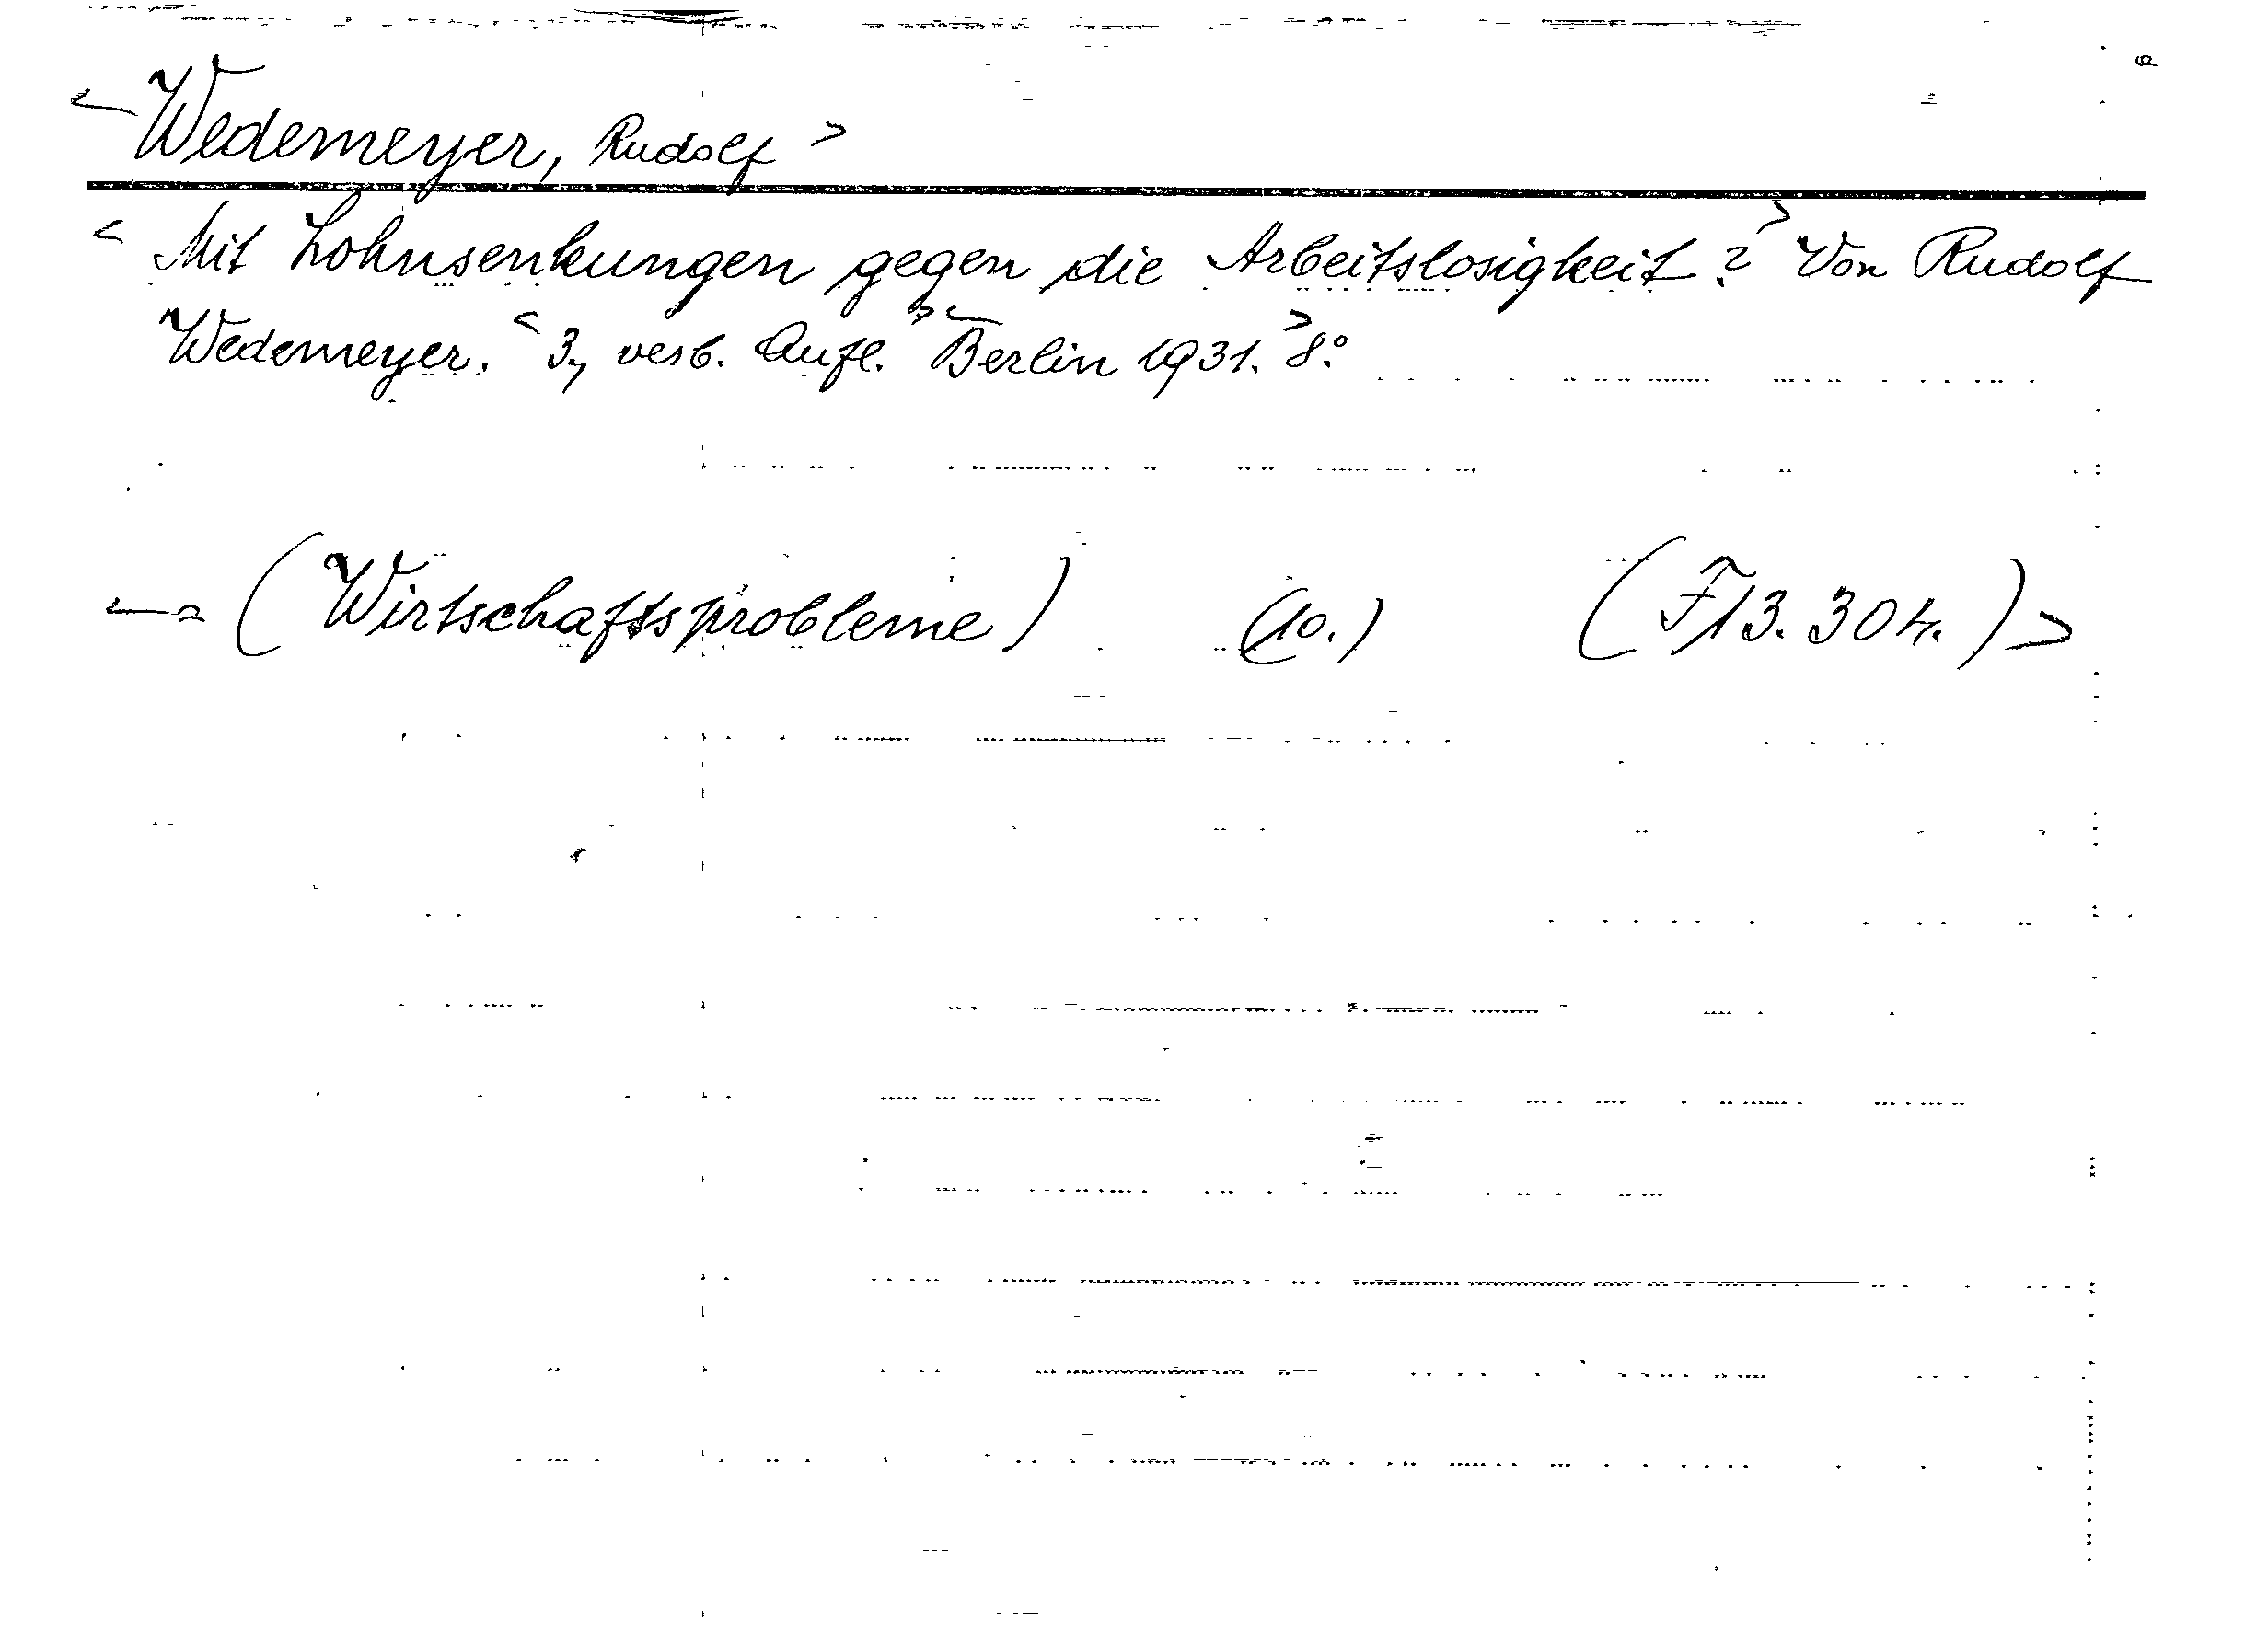 < Wedemeyer, Rudolf >
< Mit Lohnsenkungen gegen die Arbeitslosigkeit? > Von Rudolf
Wedemeyer. < 3., verb. Aufl. > < Berlin 1931. > 8°.
(Wirtschaftsprobleme) (10.) (F13.304.) >